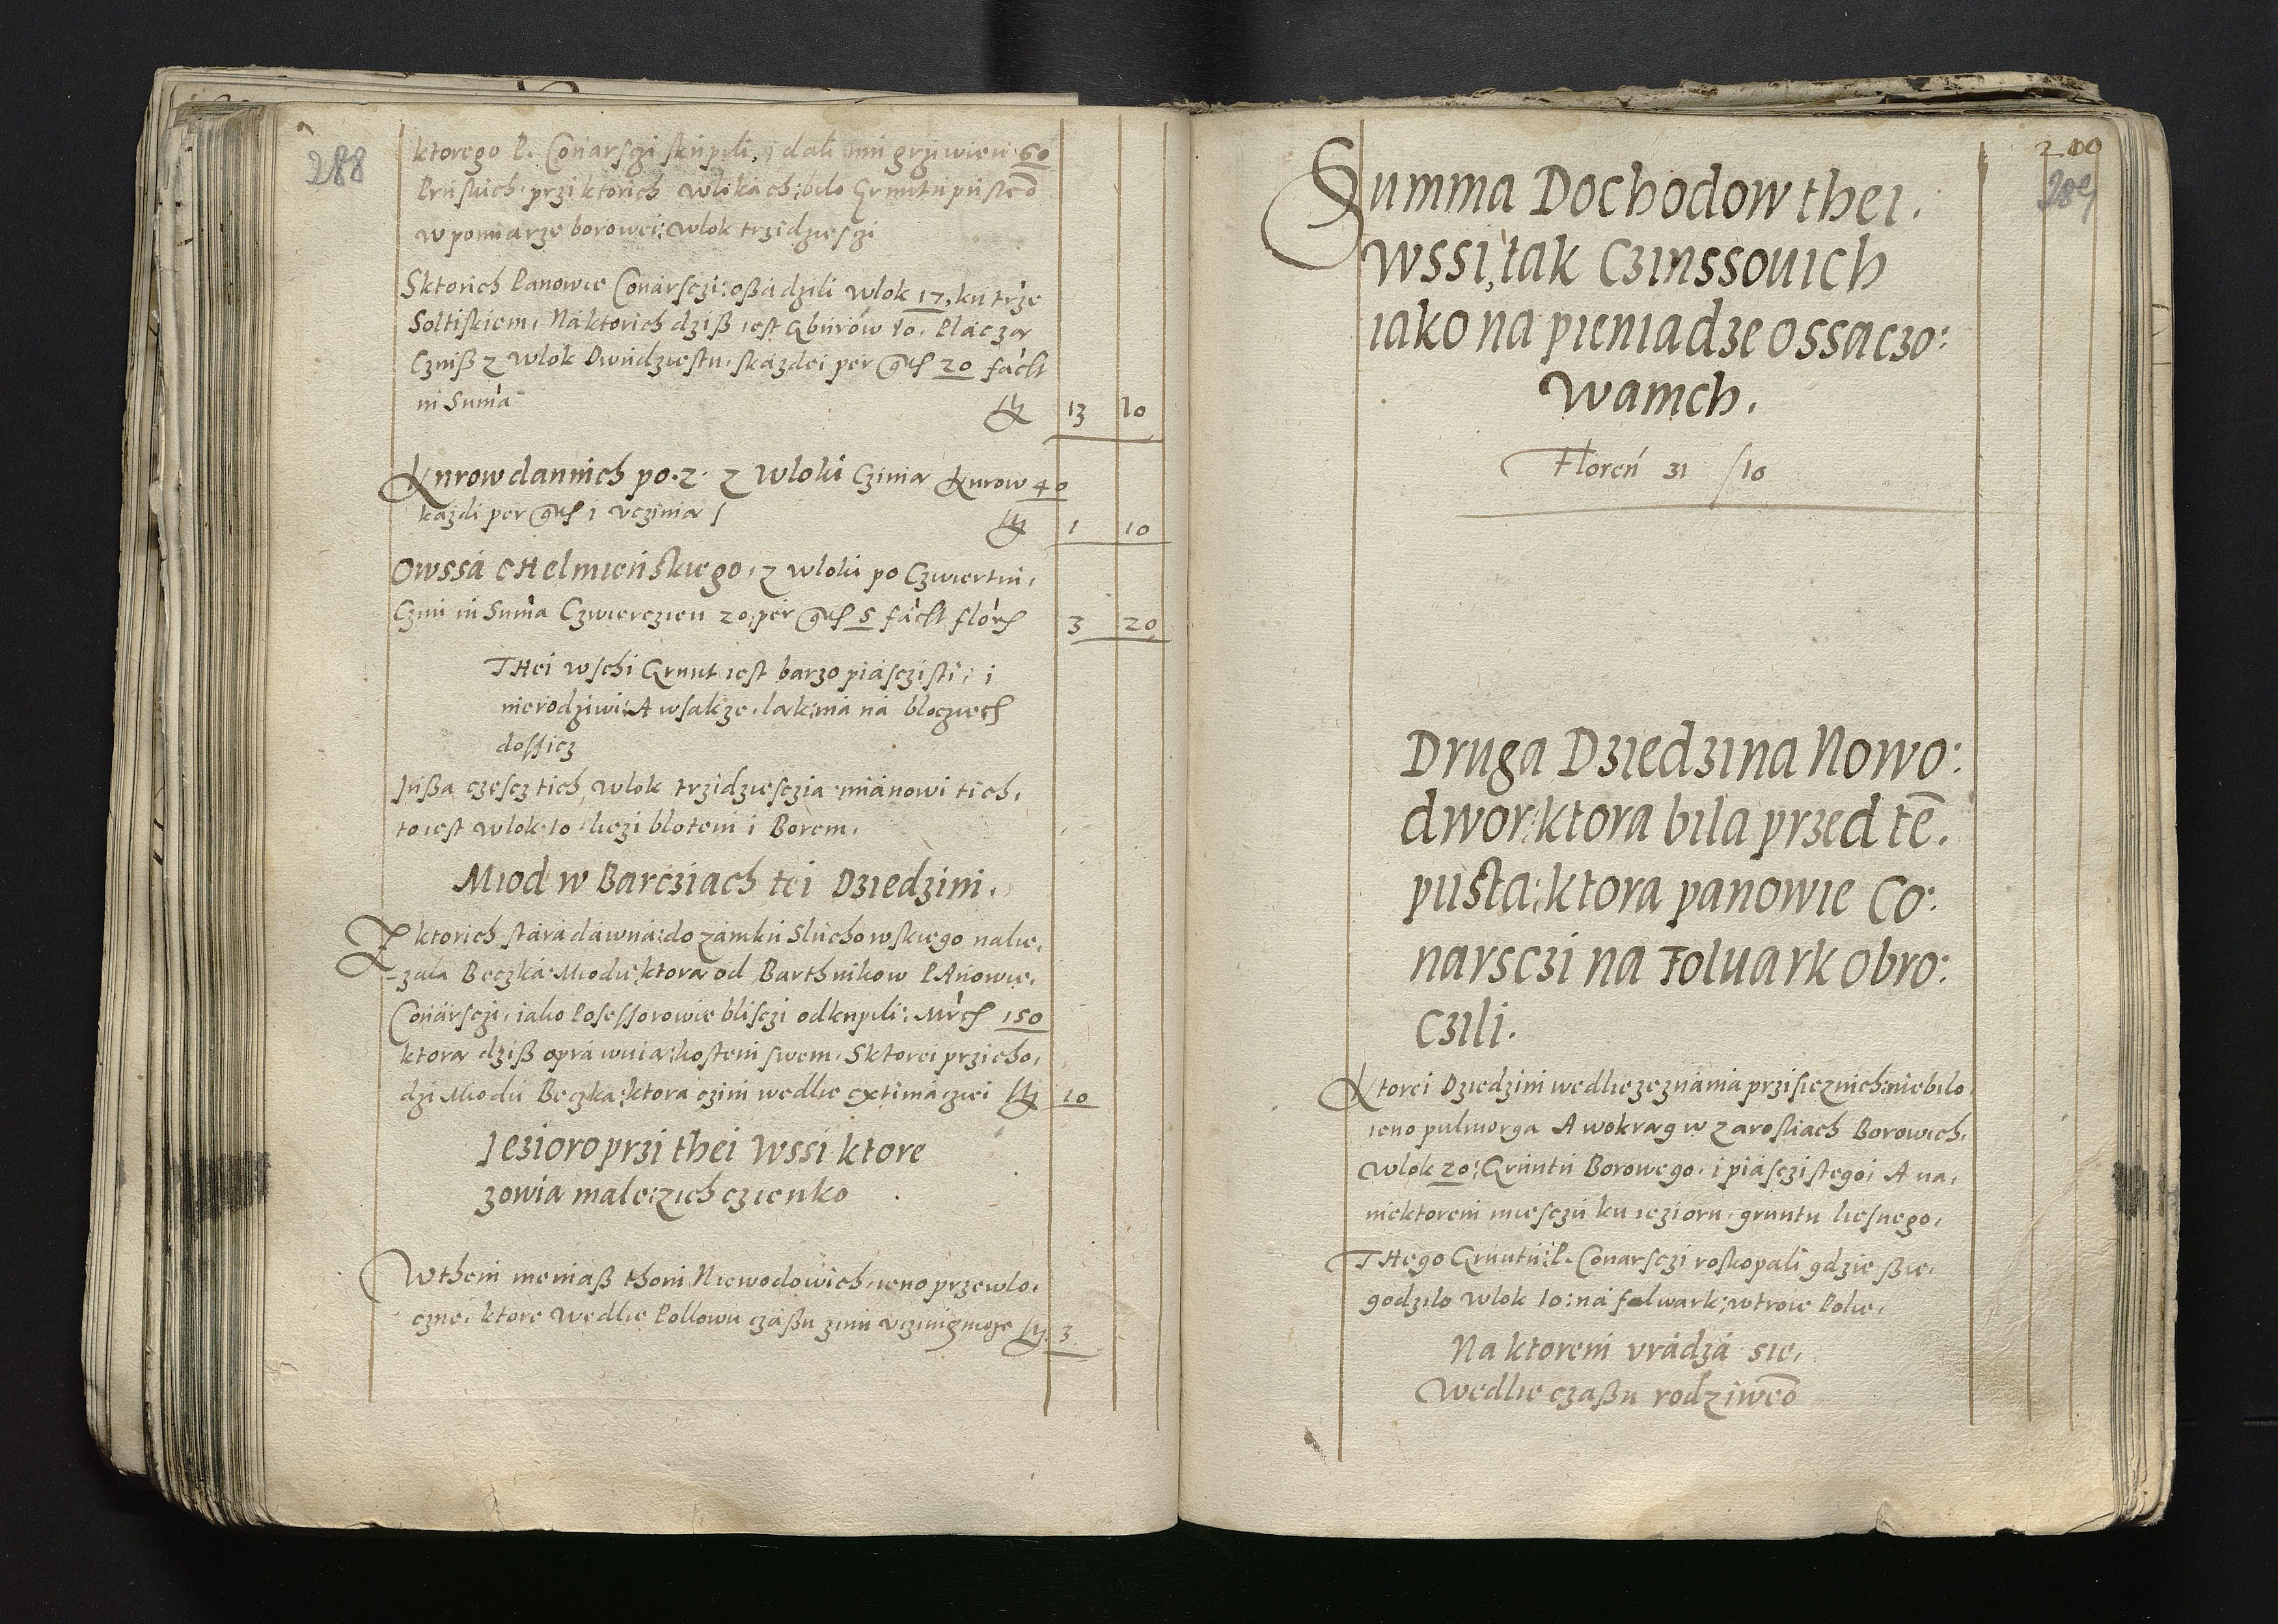 288
ktorego P. Conarsczi skupili, i dali mu grziwien 60
Pruskich, przi ktorich wlokach: bilo Gruntu pusteo
w pomiarze borowei: wlok trzidziesczi
Sktorich Panowie Conarsczi: oßadzili wlok 17, ku trze
Soltiskiem, Na ktorich dziß iest Gburow 10. Placza
Czinß z wlok Dwudziestu, skazdei per gr 20 facit
in Suma fl 13 10
Kurow dannich po .2. z wloki Czinia Kurow 40
kazdi per gr 1 vczinia fl 1 10
Owssa cHelmieńskiego, z wloki po Czwiertni,
Czini in Suma Czwierczien 20, per gr 5 facit flor 3 20
THei wschi Grunt iest barzo piasczisti, i
nierodziwi: A wsakze, lak, ma na blocziech
dossicz
Inßa czescz tich wlok trzidziesczia mianowi tich,
to iest wlok 10 liezi blotem i Borem.
Miod w Barcziach tei Dziedzini.
Z ktorich stara dawna: do zamku Sluchowskiego nalie,
-zala Beczka Miodu, ktora od Barthnikow PAnowie,
Conarsczi, iako Posessorowie blisczi odkupili: Mrc 150
ktora dziß oprawuia: kostem swem. Sktorei przicho,
dzi Miodu Beczka: ktora czini wedlie extimacziei fl 10
Iezioro przi thei Wssi ktore
zowia male: zichczienko
Wthem meniaß thoni Niewodowich, ieno przewlo,
czne, ktore wedlie Pollowu czaßu zimi vczinicz moze fl 3
200
289
Summa Dochodow thei.
Wssi, tak Czinssouich
iako na pieniadze ossaczo:
wanich.
Floren 31 / 10
Druga Dziedzina Nowo:
dwor: ktora bila przed tē.
pusta: ktora panowie Co:
narsczi na Foluark obro:
czili.
Ktorei Dziedzini wedlie zeznania przisieznich: nie bilo
ieno pulmorga A wokrag w zarosliach Borowich,
wlok 20: Gruntu Borowego, i piasczistego, A na,
niektorem miesczu ku iezioru, gruntu liesnego,
THego Gruntu: P. Conarsczi roskopali gdzie ßie,
godzilo wlok 10: na folwark: wtroie Polie,
Na ktorem vradza sie,
Wedlie czaßu rodziweō